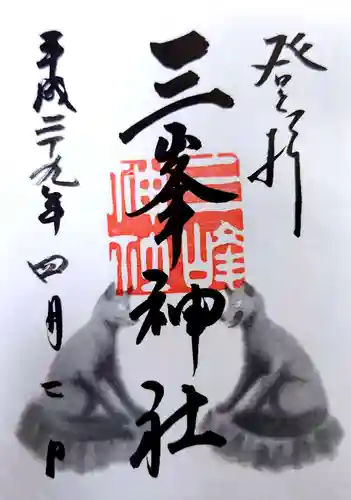 登拝
三峯神社
三峰神社
平成二十九年四月一日